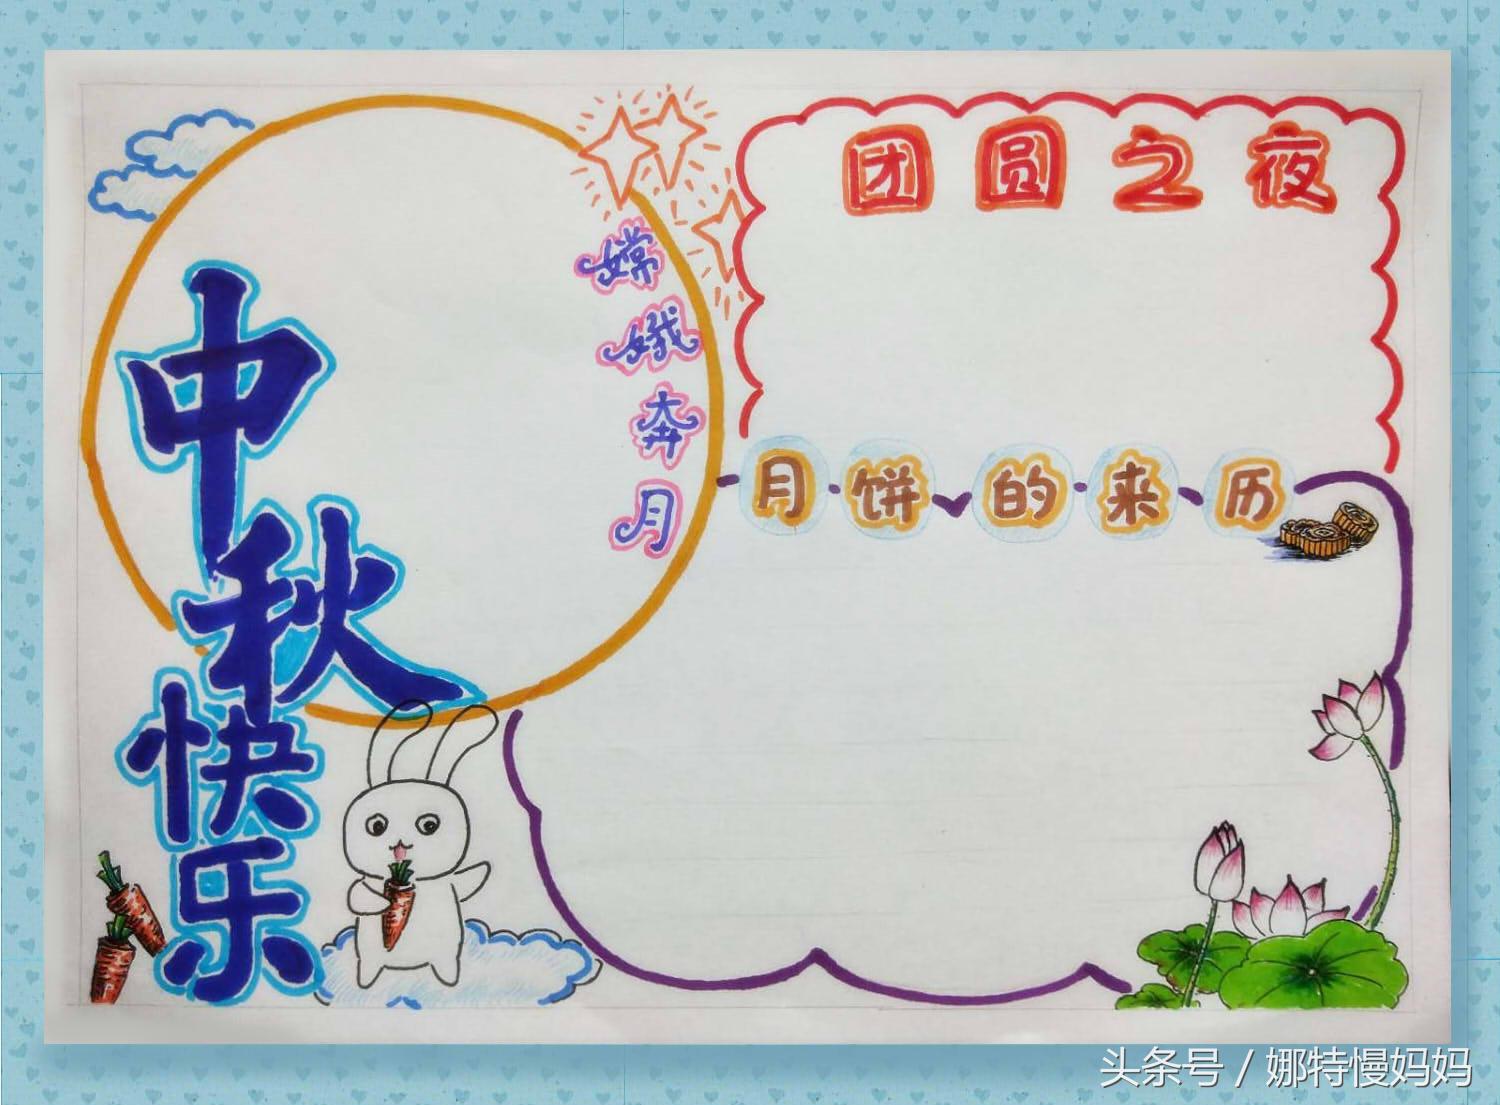 中秋快乐
嫦娥奔月
团圆之夜
月饼的来历
头条号 / 娜特慢妈妈